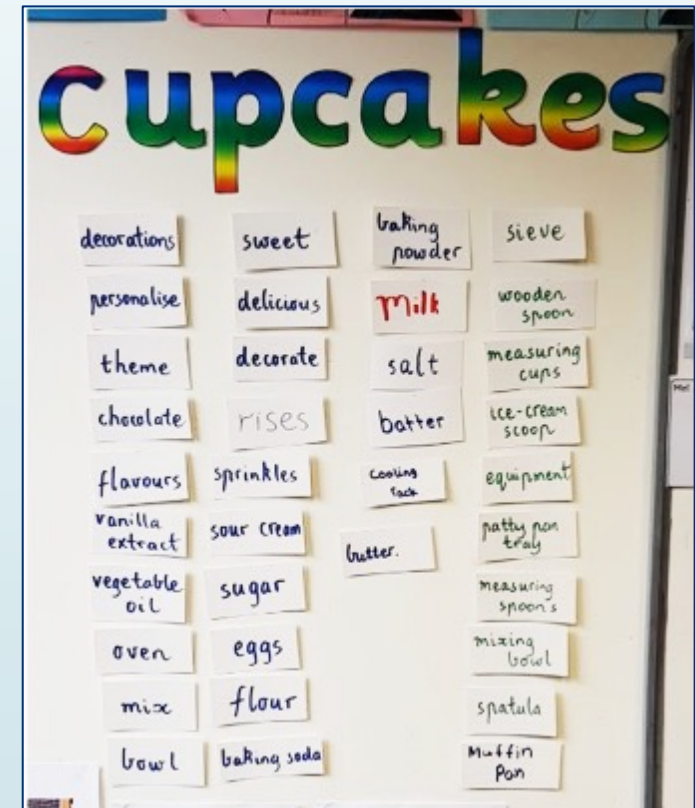 cupcakes
decorations
personalise
theme
chocolate
flavours
vanilla
extract
vegetable
oil
oven
mix
bowl
sweet
delicious
decorate
rises
sprinkles
sour cream
sugar
eggs
flour
baking soda
baking
powder
milk
salt
batter
cooling
rack
butter.
sieve
wooden
spoon
measuring
cups
ice-cream
scoop
equipment
patty pan
tray
measuring
spoons
mixing
bowl
spatula
Muffin
Pan